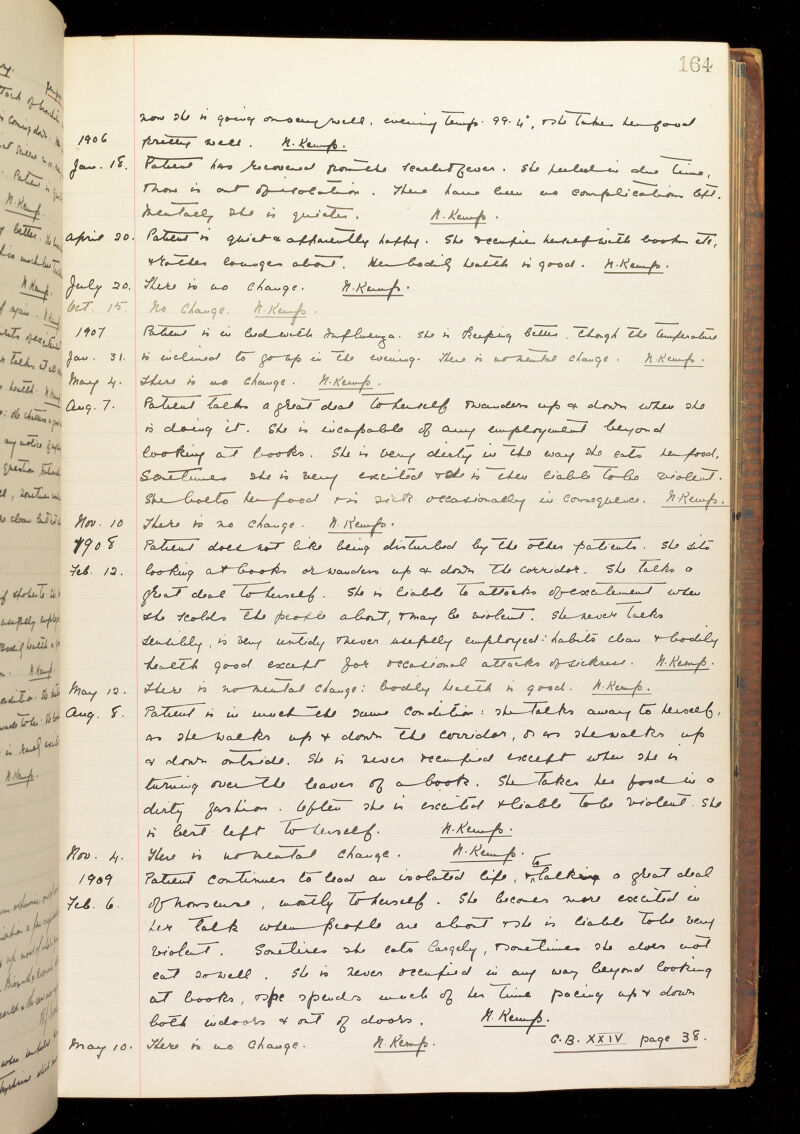 164
now she is going on very well. evening temp. 99.4°, & she takes her food
1906
pretty well. N. Kemp.
Jan. 18. Patient has recovered from the scarlet fever. She peeled in due time,
& now is out of isolation. There have been no complications left.
Mentally she is quieter. N. Kemp.
April 20. Patient is quiet & apparently happy. She occupies herself with books etc,
& rather lounges about. Her bodily health is good. N. Kemp.
July 20. There is no change. N. Kemp.
Oct. 15. No change. N. Kemp.
1907 Patient is in bed with Influenza. She is keeping better, though the temperature
Jan. 31. is inclined to go up in the evening. There is no mental change. N. Kemp.
May 4. There is no change. N. Kemp.
Aug. 7. Patient talks a great deal to herself & wanders up & down when she
is doing it. She is incapable of any employment beyond
looking at books. She is very dirty in the way she eats her food.
Sometimes she is very excited & she is then liable to be violent.
She bolts her food & is sick occasionally in consequence. N. Kemp.
Nov. 10 There is no change. N. Kemp.
1908 Patient does not like being disturbed by the other patients. She sits
Feb. 12. looking at books or wanders up & down the corridor. She talks a
great deal to herself. She is liable to attacks of excitement when
she scolds the people about, & may be violent. She never talks
sensibly, is very untidy & never usefully employed: habits clean & bodily
health good except for occasional attacks of sickness. N. Kemp.
May 12. There is no mental change: bodily health is good. N. Kemp.
Aug. 8. Patient is in much the same condition: she talks away to herself,
as she walks up & down the corridor, or as she walks up
& down outside. She is never occupied except when she is
turning over the leaves of a book. She takes her food in a
dirty fashion. Often she is excited & liable to be violent. She
is best left to herself. N. Kemp.
Nov. 4. There is no mental change. N. Kemp.
1909 Patient continues to lead an isolated life, & to talk a great deal
Feb. 6. of nonsense, mostly to herself. She becomes more excited in
her talk when people are about & she is liable to be very
violent. Sometimes she eats largely, & sometimes she does not
eat so well. She is never occupied in any way beyond looking
at books, & she spends much of her time pacing up & down
both indoors & out of doors. N. Kemp.
May 10. There is no change. N. Kemp. C.B. XXIV page 38.